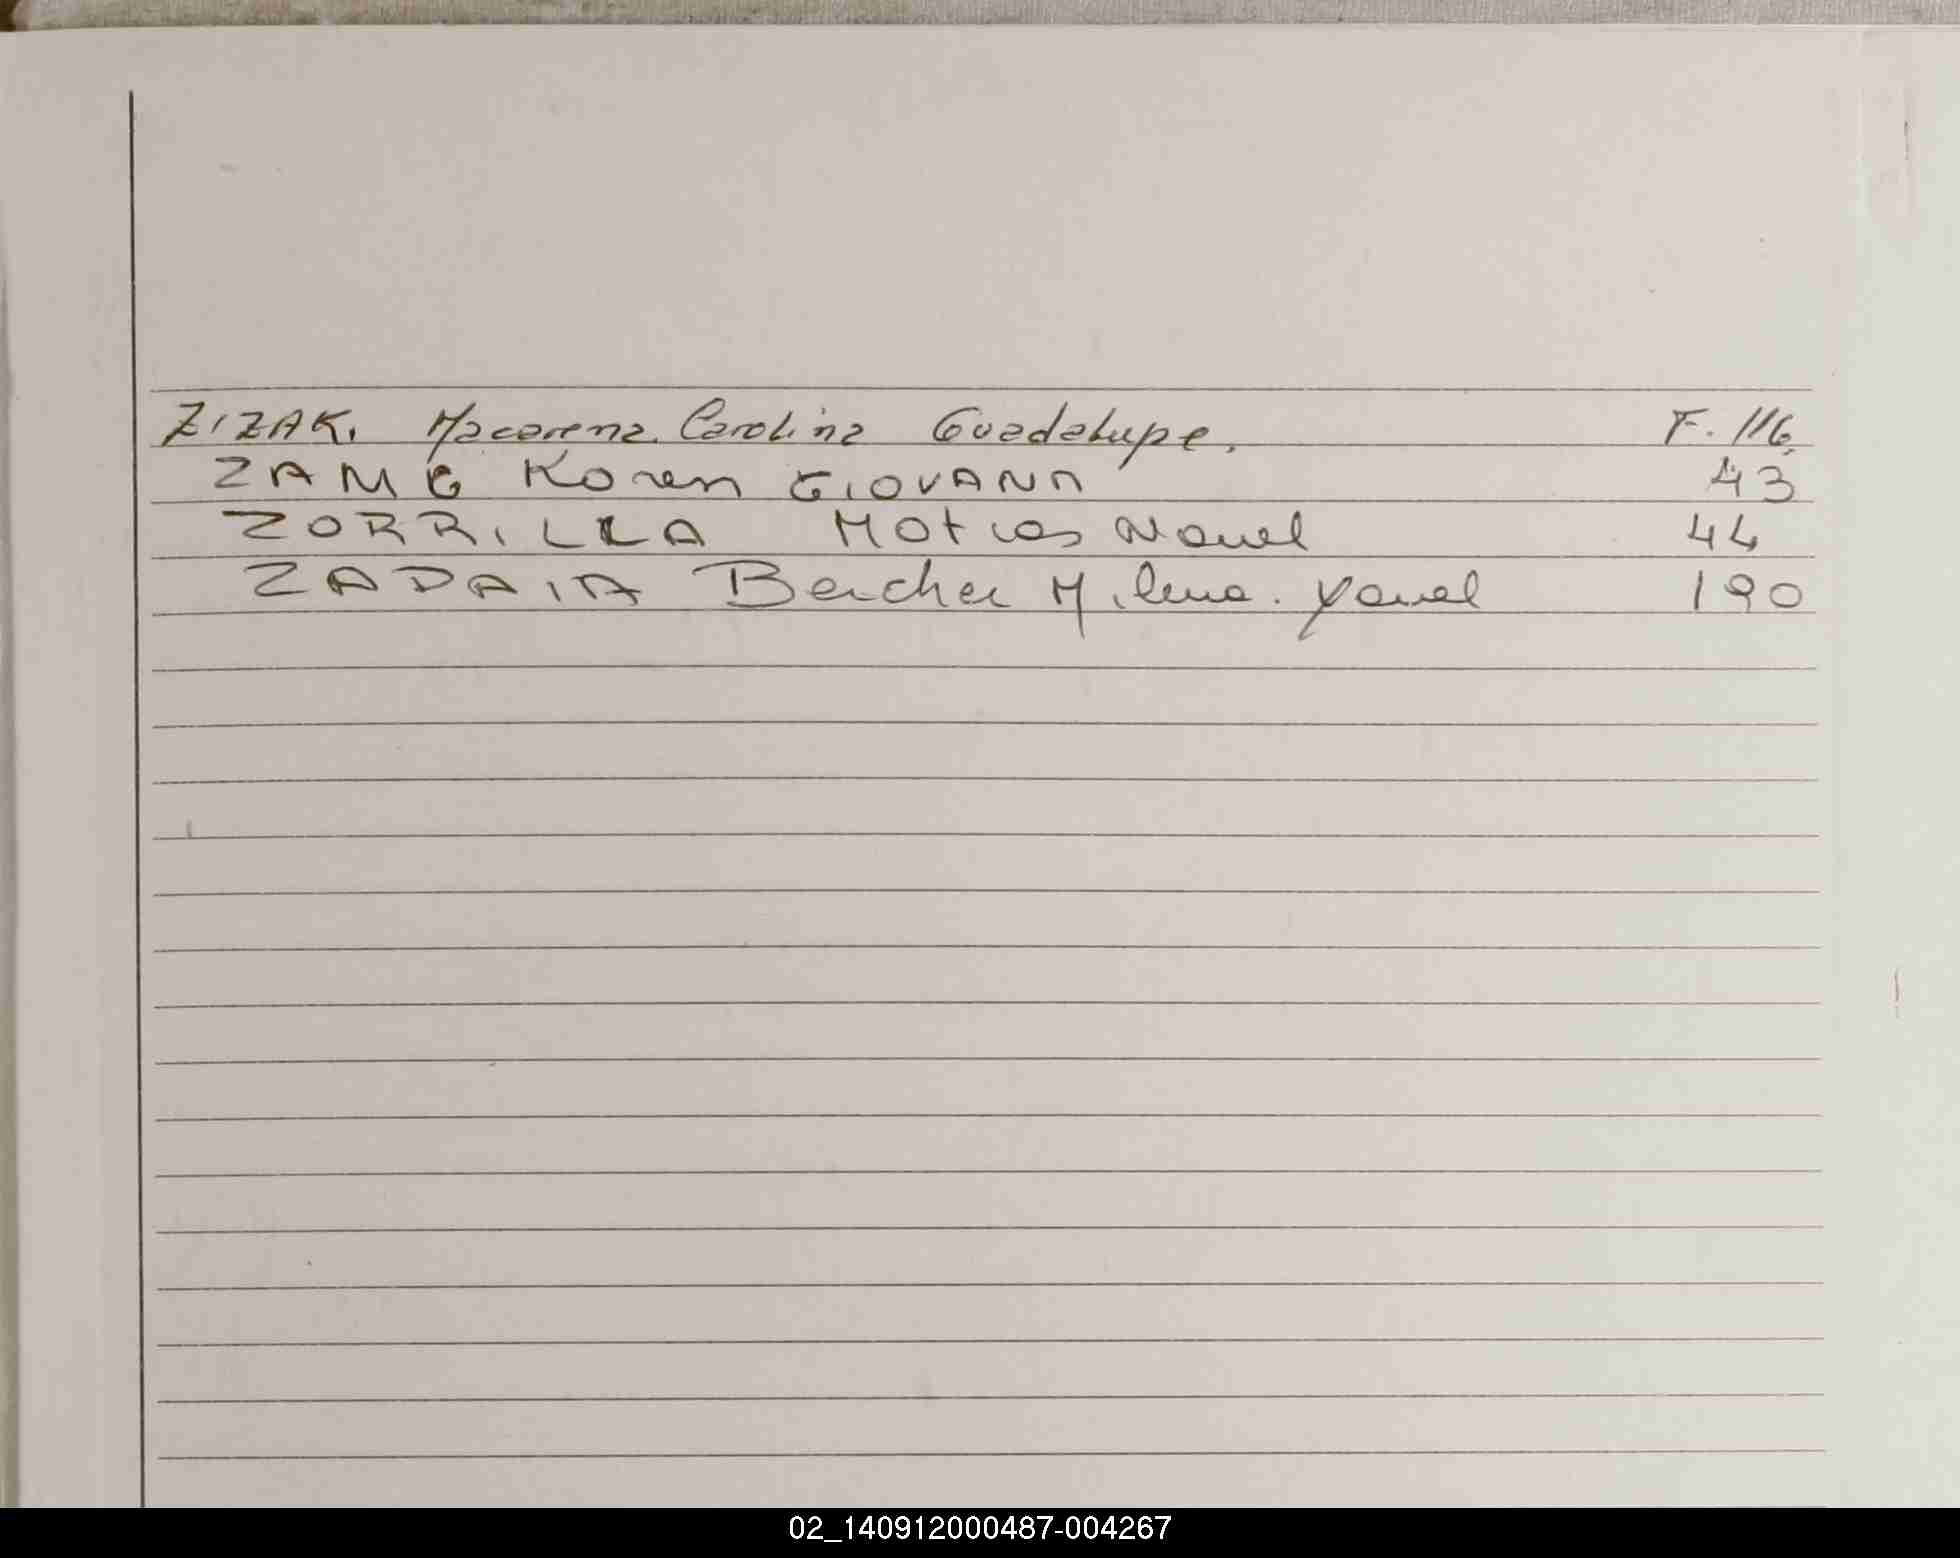 ZIZAK. Macarena. Carolina Guadalupe. F. 116.
ZAMG Karen GIOVANA 43
ZORRILLA Matias Nauel 44
ZADAIA Bercher Milena. Yanel 190
02_140912000487-004267